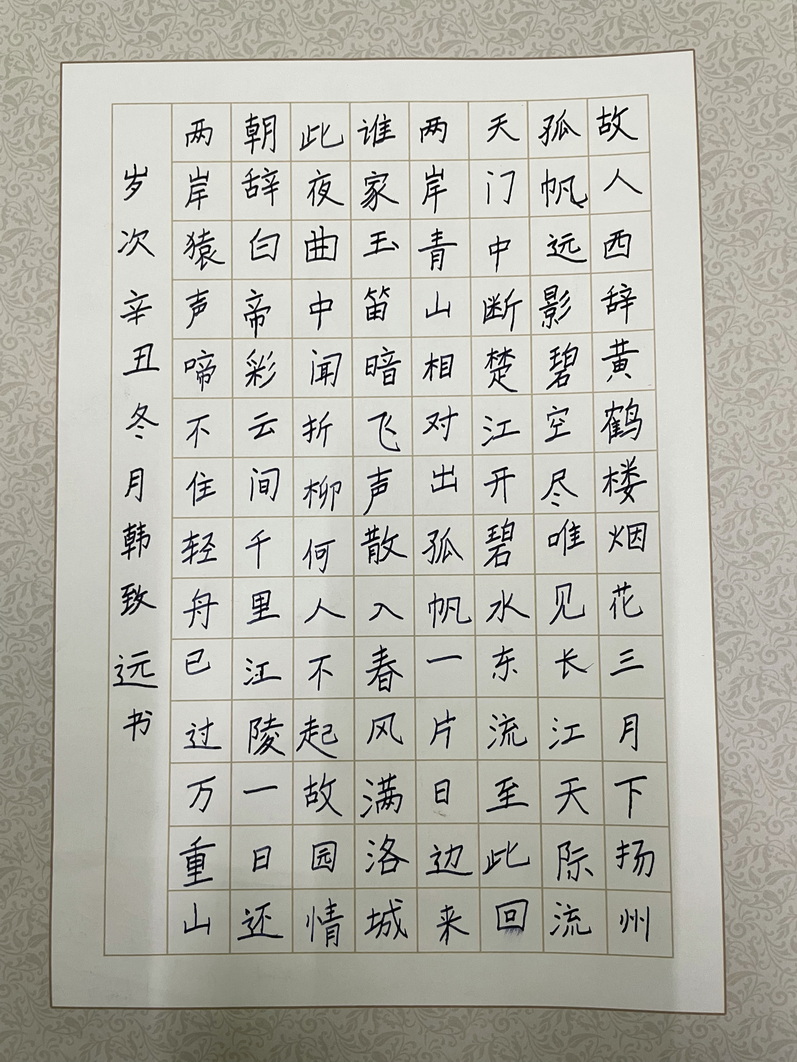 故人西辞黄鹤楼烟花三月下扬州
孤帆远影碧空尽唯见长江天际流
天门中断楚江开碧水东流至此回
两岸青山相对出孤帆一片日边来
谁家玉笛暗飞声散入春风满洛城
此夜曲中闻折柳何人不起故园情
朝辞白帝彩云间千里江陵一日还
两岸猿声啼不住轻舟已过万重山
岁次辛丑冬月韩致远书